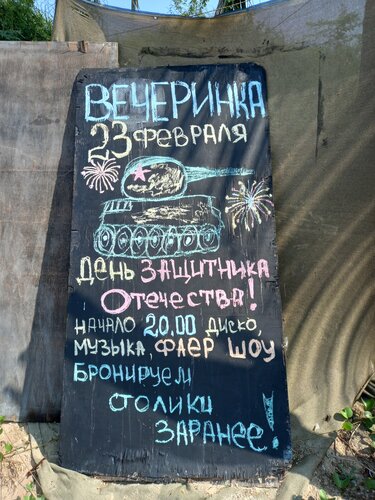 ВЕЧЕРИНКА
23 ФЕВРАЛЯ
ДЕНЬ ЗАЩИТНИКА
ОТЕЧЕСТВА!
НАЧАЛО 20.00 ДИСКО,
МУЗЫКА, ФАЕР ШОУ
БРОНИРУЕМ
СТОЛИКИ
ЗАРАНЕЕ!